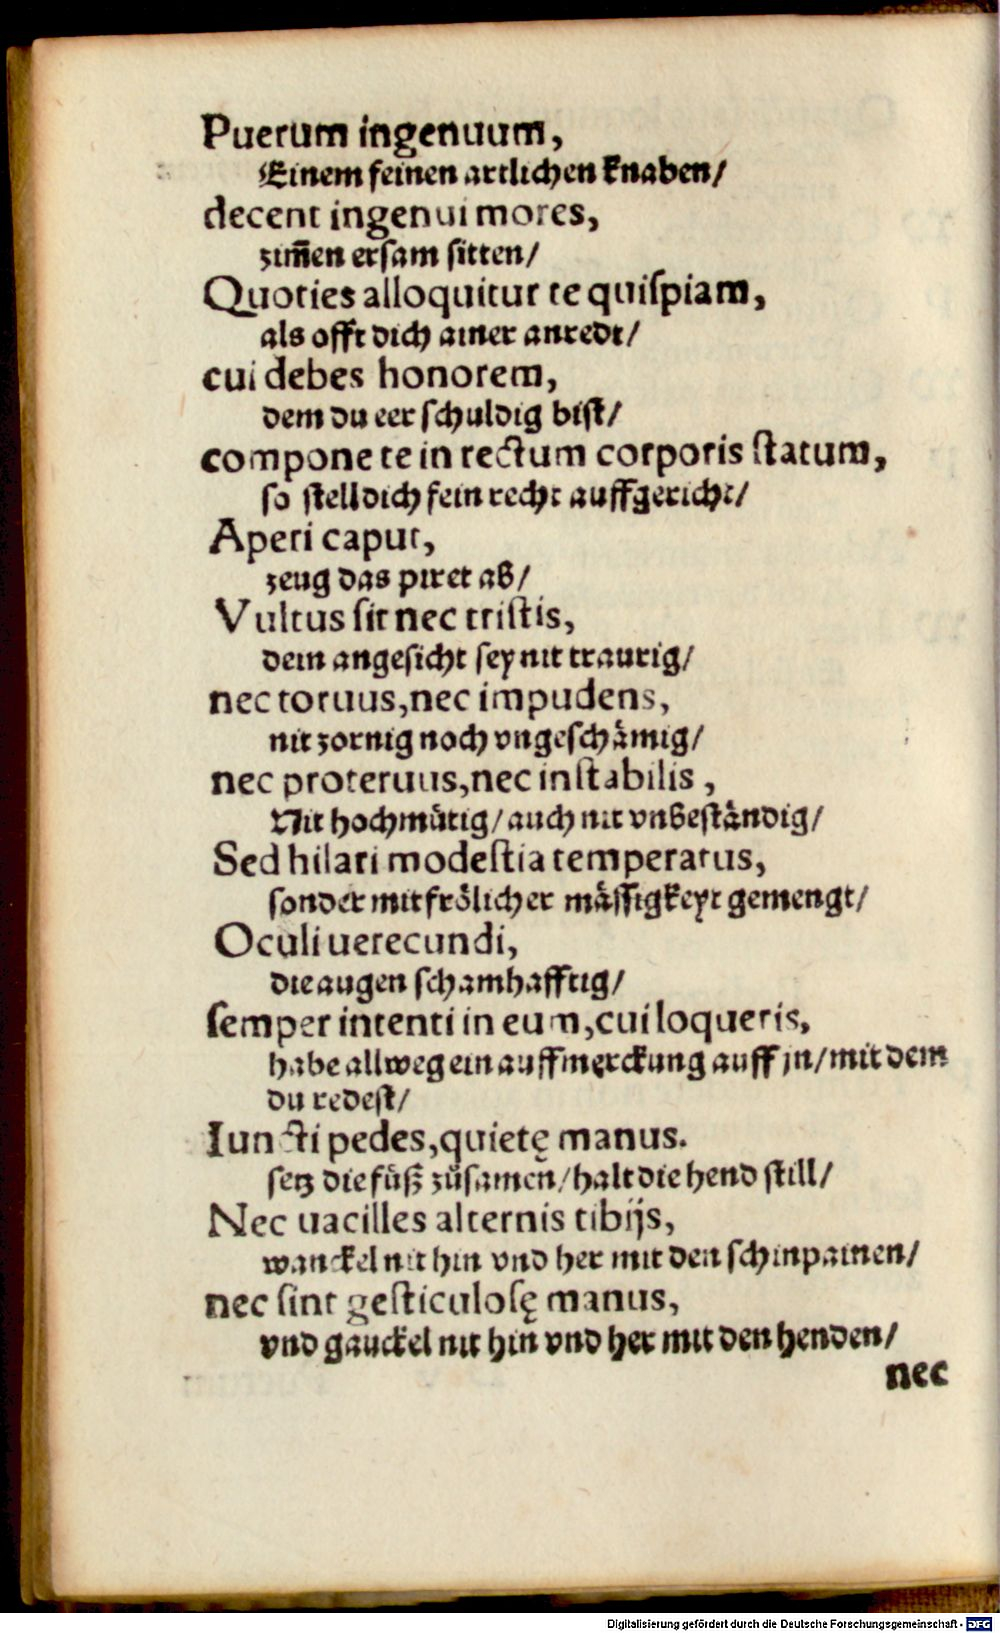 Puerum ingenuum,
Einem feinen artlichen knaben/
decent ingenui mores,
zim̃en ersam sitten/
Quoties alloquitur te quiſpiam,
als offt dich ainer anredt/
cui debes honorem,
dem du eer ſchuldig biſt/
compone te in rectum corporis ſtatum,
ſo ſtell dich fein recht auffgericht/
Aperi caput,
zeug das piret ab/
Vultus ſit nec triſtis,
dein angeſicht ſey nit traurig/
nec toruus, nec impudens,
nit zornig noch vngeſchåmig/
nec proteruus, nec inſtabilis,
Nit hochmůtig/ auch nit vnbeſtåndig/
Sed hilari modeſtia temperatus,
ſonder mit frőlicher måſſigkeyt gemengt/
Oculi uerecundi,
die augen ſchamhafftig/
ſemper intenti in eum, cui loqueris,
habe allweg ein auffmerckung auff jn/ mit dem
du redeſt/
Iuncti pedes, quietę manus.
ſetz die fůß zůſamen/ halt die hend ſtill/
Nec uacilles alternis tibijs,
wanckel nit hin vnd her mit den ſchinpainen/
nec ſint geſticuloſę manus,
vnd gauckel nit hin vnd her mit den henden/
nec
Digitalisierung gefördert durch die Deutsche Forschungsgemeinschaft - DFG